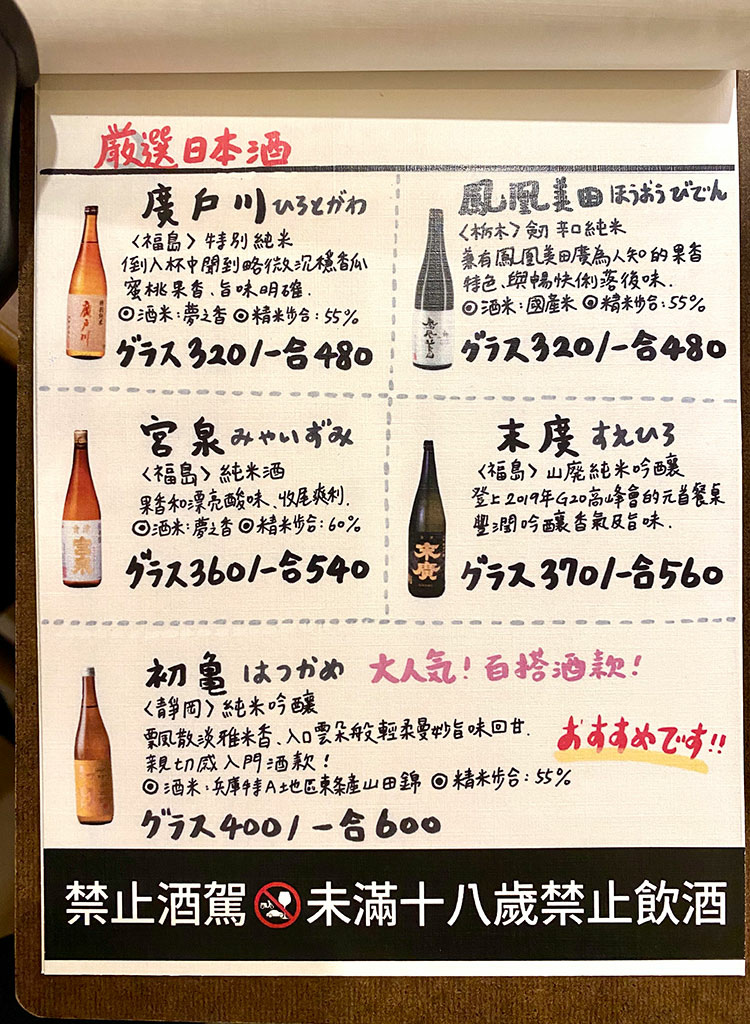 厳選日本酒
廣戶川 ひろとがわ
〈福島〉特別純米
倒入杯中聞到略微沉穩香瓜
蜜桃果香、旨味明確.
◎酒米:夢之香 ◎精米步合:55%
グラス320/一合480
鳳凰美田 ほうおうびでん
〈栃木〉劒 辛口純米
兼有鳳凰美田廣為人知的果香
特色、與暢快俐落後味.
◎酒米:國產米 ◎精米步合:55%
グラス320/一合480
宮泉 みやいずみ
〈福島〉純米酒
果香和漂亮酸味、收尾爽利.
◎酒米:夢之香 ◎精米步合:60%
グラス360/一合540
末廣 すえひろ
〈福島〉山廃純米吟釀
登上2019年G20高峰會的元首餐桌
豐潤吟釀香氣及旨味.
グラス370/一合560
初亀 はつかめ 大人気!百搭酒款!
〈靜岡〉純米吟釀
飄散淡雅米香、入口雲朵般輕柔曼妙旨味回甘.
親切感入門酒款!
おすすめです!!
◎酒米:兵庫特A地區東条產山田錦 ◎精米步合:55%
グラス400/一合600
禁止酒駕 未滿十八歲禁止飲酒